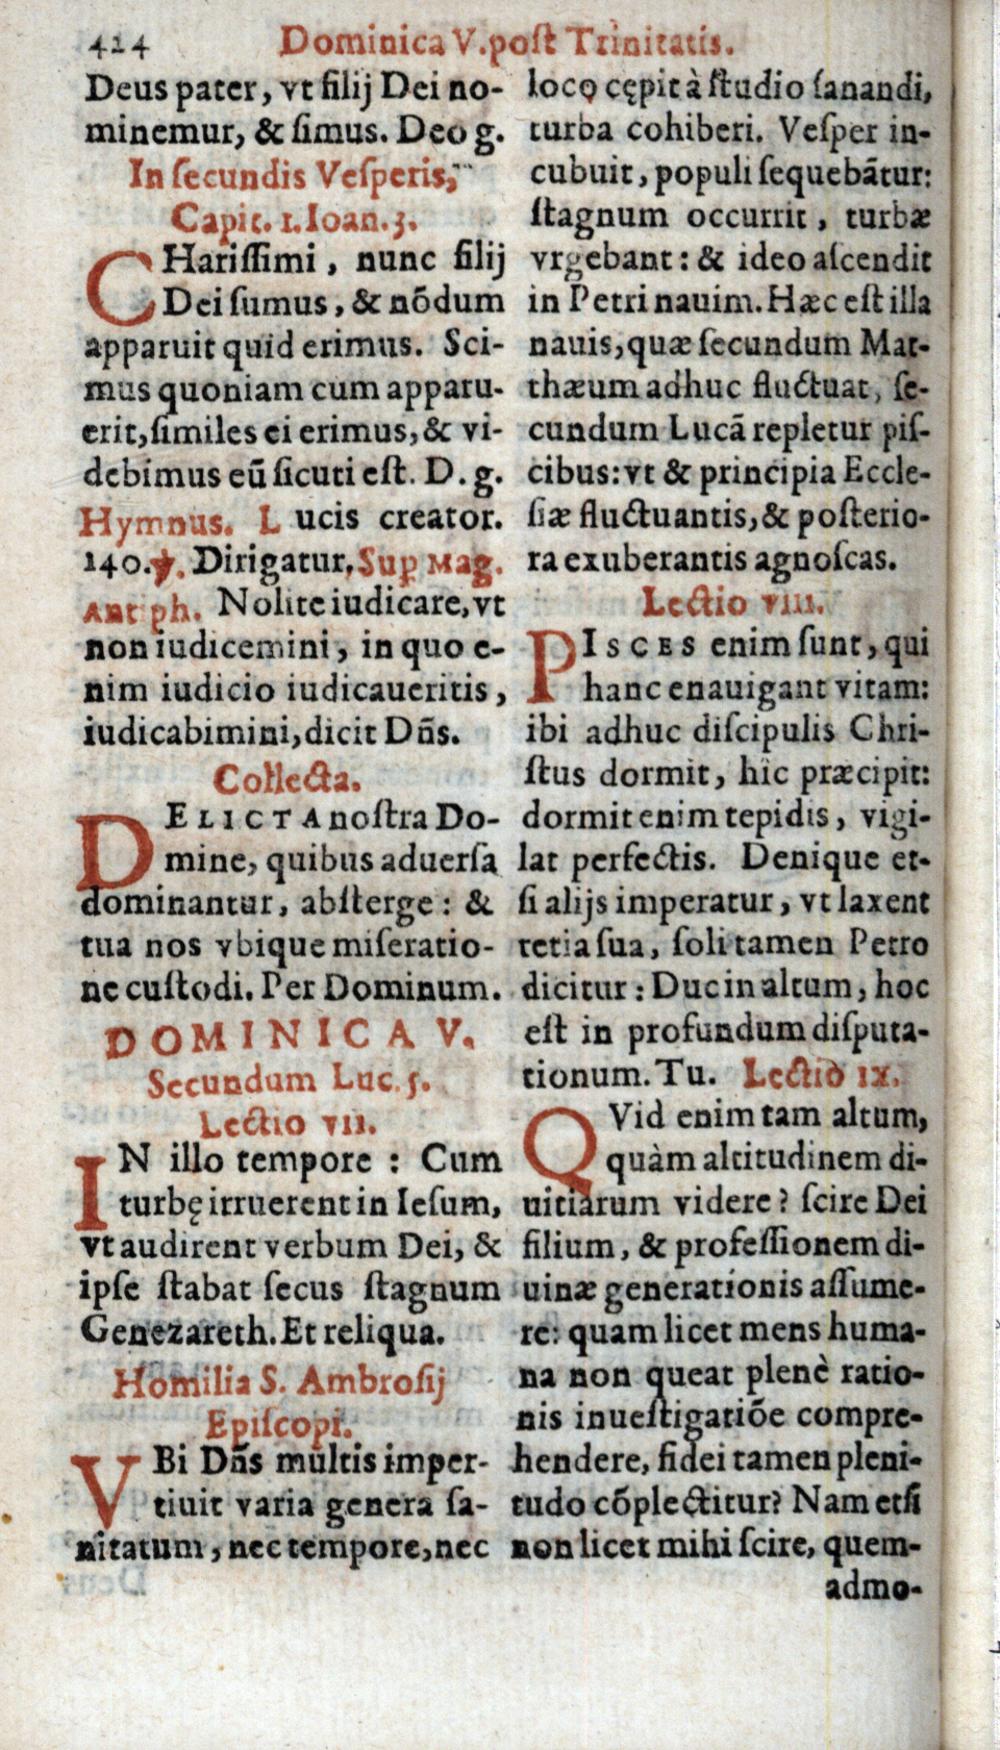 424 Dominica V. post Trinitatis.
Deus pater, vt filij Dei no-
minemur, & ſimus. Deo g.
In ſecundis Veſperis,
Capit. 1. Ioan. 3.
CHariſſimi, nunc filij
Dei ſumus, & nõdum
apparuit quid erimus. Sci-
mus quoniam cum apparu-
erit, ſimiles ei erimus, & vi-
debimus eũ ſicuti eſt. D. g.
Hymnus. Lucis creator.
140. ℣. Dirigatur. Sup Mag.
Antiph. Nolite iudicare, vt
non iudicemini, in quo e-
nim iudicio iudicaueritis,
iudicabimini, dicit Dñs.
Collecta.
DELICTA noſtra Do-
mine, quibus aduerſa
dominantur, abſterge: &
tua nos vbique miſeratio-
ne cuſtodi. Per Dominum.
DOMINICA V.
Secundum Luc. 5.
Lectio vii.
IN illo tempore: Cum
turbę irruerent in Ieſum,
vt audirent verbum Dei, &
ipſe ſtabat ſecus ſtagnum
Genezareth. Et reliqua.
Homilia S. Ambroſij
Epiſcopi.
VBi Dñs multis imper-
tiuit varia genera ſa-
nitatum, nec tempore, nec
loco cępit à ſtudio ſanandi,
turba cohiberi. Veſper in-
cubuit, populi ſequebãtur:
ſtagnum occurrit, turbæ
vrgebant: & ideo aſcendit
in Petri nauim. Hæc eſt illa
nauis, quæ ſecundum Mat-
thæum adhuc fluctuat, ſe-
cundum Lucã repletur piſ-
cibus: vt & principia Eccle-
ſiæ fluctuantis, & poſterio-
ra exuberantis agnoſcas.
Lectio viii.
PISCES enim ſunt, qui
hanc enauigant vitam:
ibi adhuc diſcipulis Chri-
ſtus dormit, hîc præcipit:
dormit enim tepidis, vigi-
lat perfectis. Denique et-
ſi alijs imperatur, vt laxent
retia ſua, ſoli tamen Petro
dicitur: Duc in altum, hoc
eſt in profundum diſputa-
tionum. Tu. Lectio ix.
QVid enim tam altum,
quàm altitudinem di-
uitiarum videre? ſcire Dei
filium, & profeſſionem di-
uinæ generationis aſſume-
re: quam licet mens huma-
na non queat plenè ratio-
nis inueſtigatiõe compre-
hendere, fidei tamen pleni-
tudo cõplectitur? Nam etſi
non licet mihi ſcire, quem-
admo-